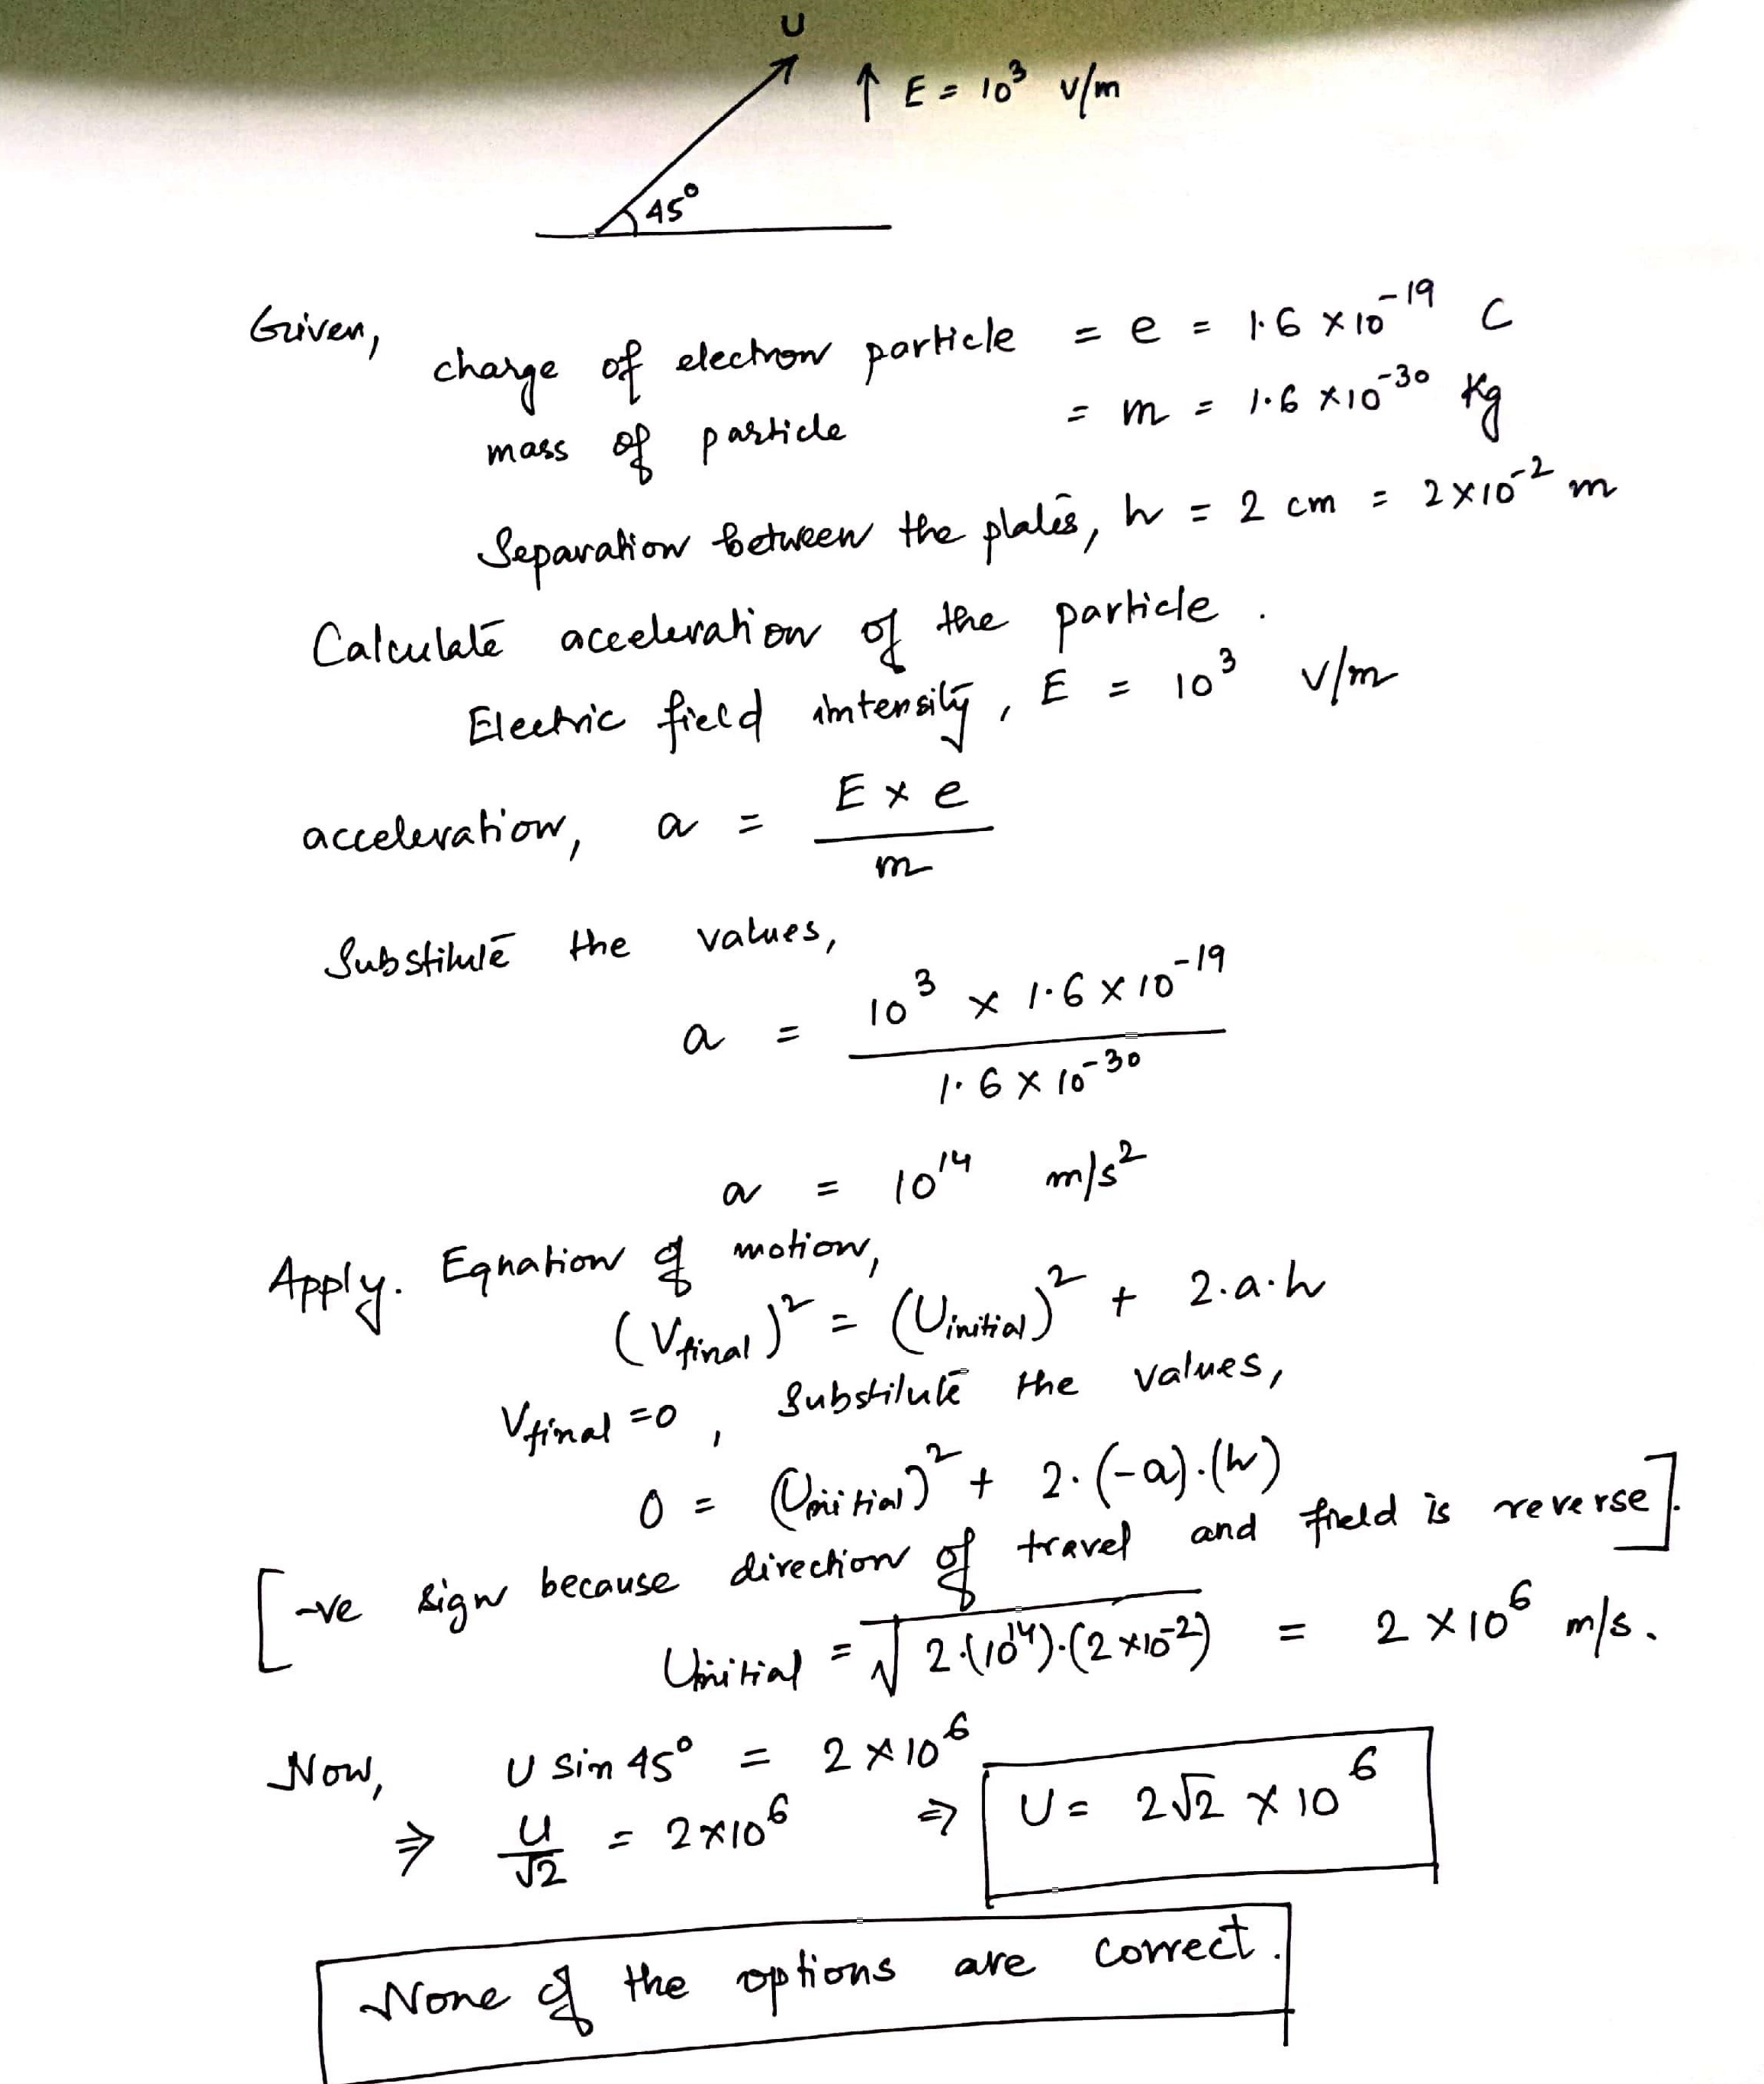 U
↑ E = 10³ V/m
45°
Given,
charge of electron particle = e = 1.6 × 10⁻¹⁹ C
mass of particle = m = 1.6 × 10⁻³⁰ Kg
Separation between the plates, h = 2 cm = 2×10⁻² m
Calculate acceleration of the particle.
Electric field intensity, E = 10³ V/m
acceleration, a = (E × e)/m
Substitute the values,
a = (10³ × 1.6 × 10⁻¹⁹)/(1.6 × 10⁻³⁰)
a = 10¹⁴ m/s²
Apply. Equation of motion,
(Vfinal)² = (Uinitial)² + 2.a.h
Vfinal = 0, Substitute the values,
0 = (Uinitial)² + 2.(-a).(h)
[-ve sign because direction of travel and field is reverse].
Uinitial = √(2.(10¹⁴).(2×10⁻²)) = 2 × 10⁶ m/s.
Now, U sin 45° = 2 × 10⁶
⇒ U/√2 = 2×10⁶ ⇒ U = 2√2 × 10⁶
None of the options are correct.